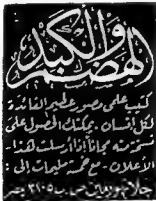 الهضم والكبد
كتيب علمى مصور عظيم الفائدة
لكل انسان . يمكنك الحصول على
نسخة منه مجانا اذا ارسلت هذا
الاعلان . مع خمسة مليمات الى :
ص . ب ٢١٠٥ مصر